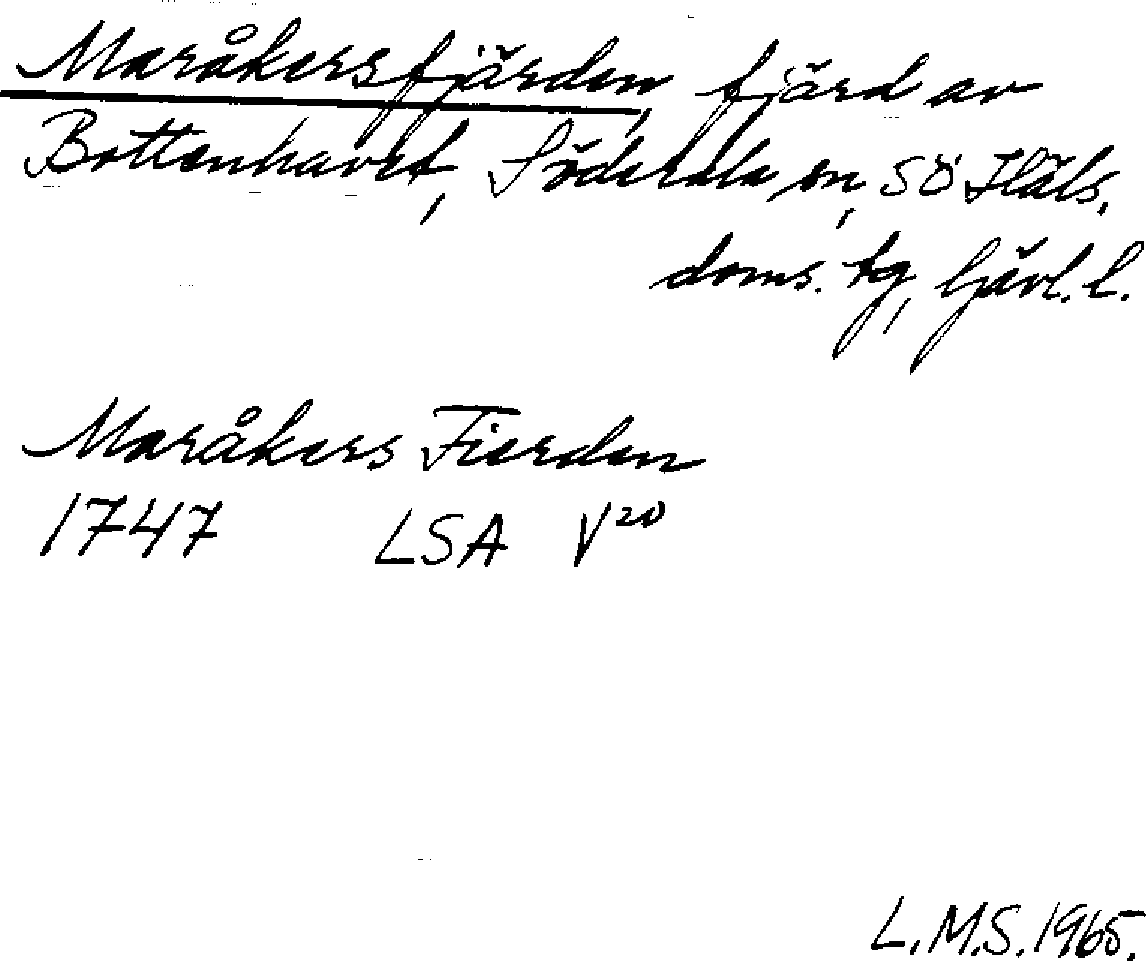 Maråkersfjärden, fjärd av
Bottenhavet, Söderala sn, SÖ Häls.
doms. tg, Gävl. l.
Maråkers Fierden
1747 LSA V²⁰
L.M.S. 1965.